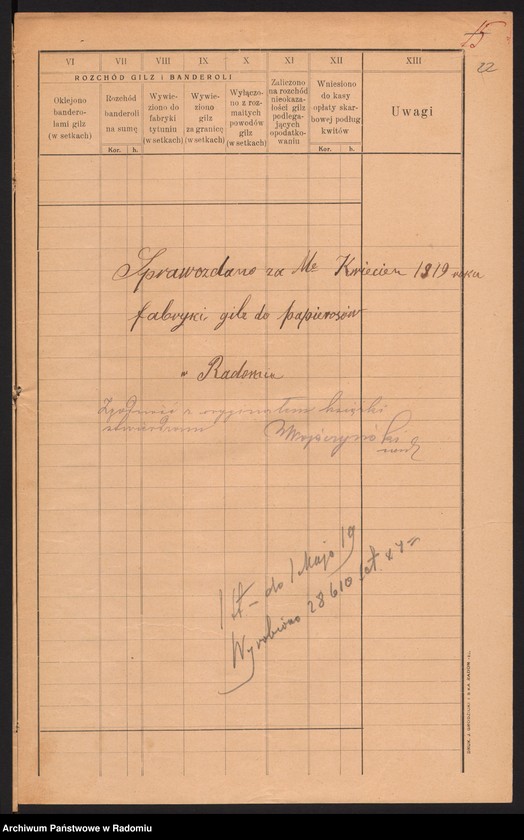 15
22
VI VII VIII IX X XI XII XIII
ROZCHÓD GILZ i BANDEROLI
Oklejono banderolami gilz (w setkach)
Rozchód banderoli na sumę
Kor. h.
Wywieziono do fabryki tytuniu (w setkach)
Wywieziono gilz za granicę (w setkach)
Wyłączono z rozmaitych powodów gilz (w setkach)
Zaliczono na rozchód nieokazałości gilz podlegających opodatkowaniu
Wniesiono do kasy opłaty skarbowej podług kwitów
Kor. h.
Uwagi
Sprawozdano za Mc Kwiecien 1919 roku
fabryki gilz do papierosów
w Radomiu
Zgodność z oryginałem książki
stwierdzam
do 1 Majo 19
Wyrobiono 28610
DRUK. J. GRODZICKI I S-KA RADOM
Archiwum Państwowe w Radomiu